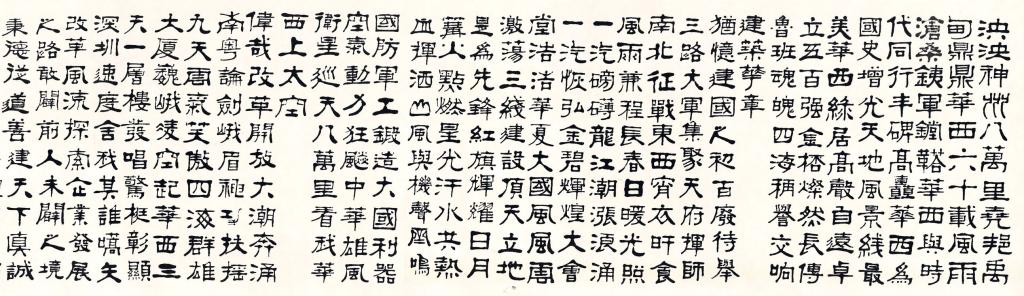 泱泱神州八萬里堯禹
甸鼎鼎華西六十載風雨
滄桑鐵軍鏜鞳華西與時
代同行丰碑髙矗華西為
國史增光天地風景綫最
美華西綠居髙聲自遠卓
立五百强金榜燦然長傳
魯班魂魄四海稱譽交响
建築華章
猶憶建國之初百廢待舉
三路大軍集聚天府揮師
南北征戰東西宵衣旰食
風雨兼程長春日暖光照
一汽磅礴龍江潮漲淚涌
一汽恢弘金碧輝煌大會
堂浩浩華夏大國風風雲
激蕩三綫建設頂天立地
是為先鋒紅旗輝耀日月
篝火點燃星光汗水共熱
血揮洒山風與機聲凰鳴
國防軍工鍛造大國利器
空氣動力狂飈中華雄風
衛星巡天八萬里看我華
西上太空
偉哉改革開放大潮奔涌
南粤論劍峨眉扶摇
九天雲氣笑傲四海群雄
大厦巍峨凌空起華西三
天一層樓發唱驚挺彰顯
深圳速度舍我其誰嚆矢
改革風流探索企業發展
之路敢闢前人未闢之境
秉德從道善建天下真誠